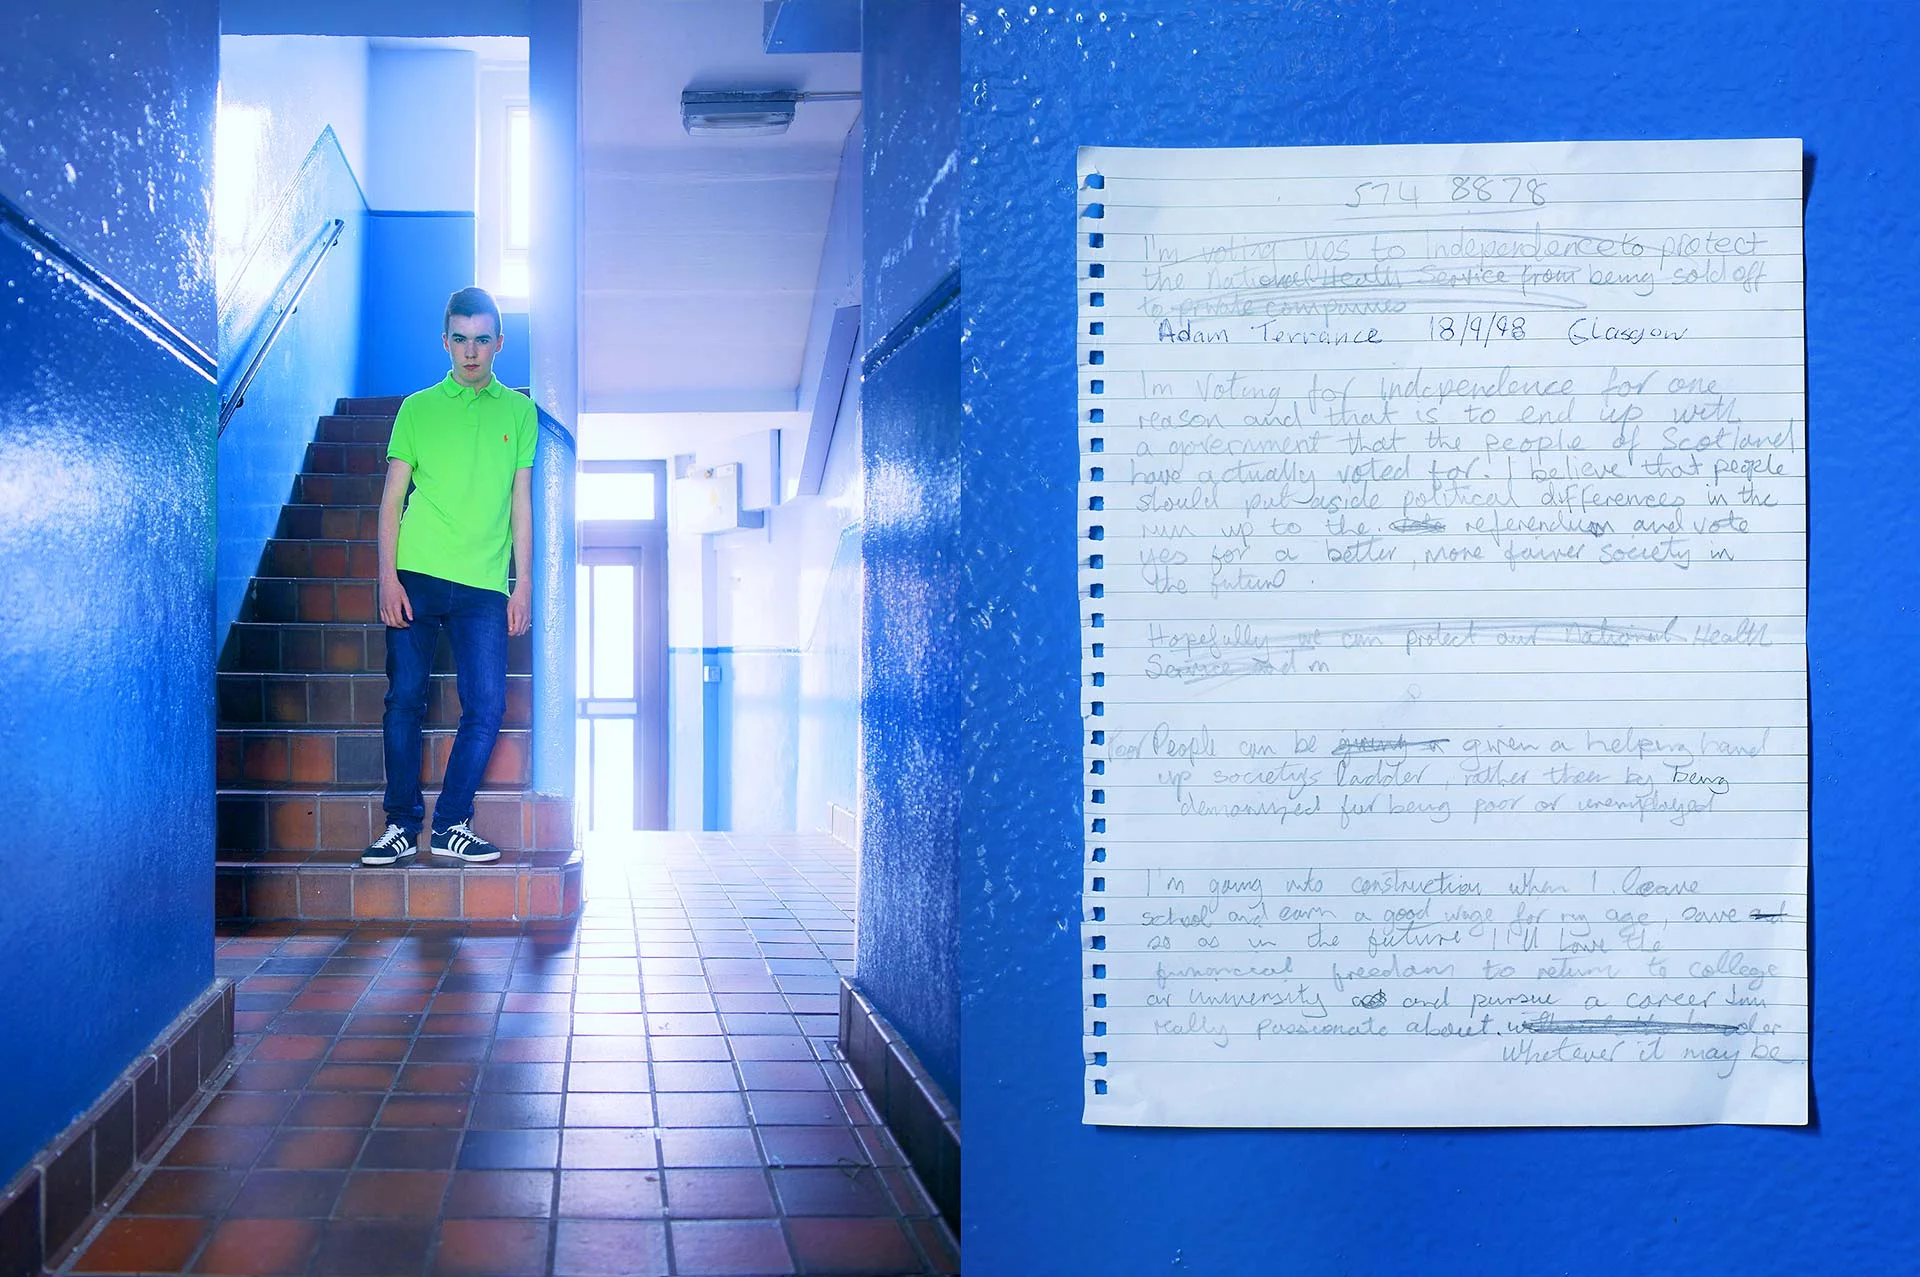 574 8878
I'm voting yes to Independence to protect
the National Health Service from being sold off
to private companies
Adam Terrance 18/9/98 Glasgow
Im Voting for independence for one
reason and that is to end up with
a government that the people of Scotland
have actually voted for. I believe that people
should put aside political differences in the
run up to the referendum and vote
yes for a better, more fairer society in
the future
Hopefully we can protect our National Health
Service and in
Poor People can be given a helping hand
up society's ladder, rather then by being
demonized for being poor or unemployed
I'm going into construction when I leave
school and earn a good wage for my age, save and
so as in the future I'll have the
financial freedom to return to college
or university and pursue a career Im
really passionate about.
Whatever it may be